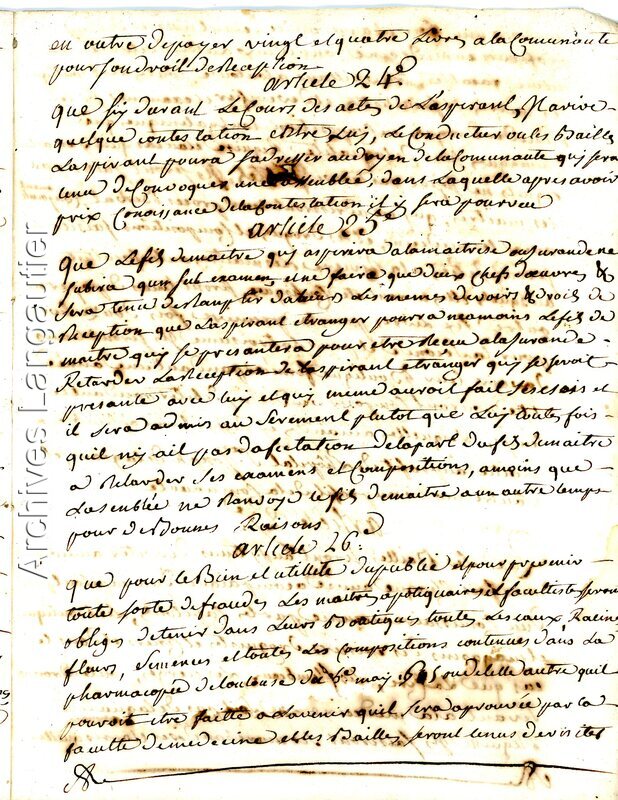 en outre de payer vingt et quatre Livres a la Comunaute
pour son droit de Reception
article 24e
que siy durant Le Cours des actes de L'aspirant, N'arive
quelque contestation entre Luy, Le Conducteur ou les Bailles
Laspirant pourra sadresser au doyen de la Comunaute quy sera
tenu de Convoquer une assemblée, dans Laquelle apres avoir
prix Conoissance de la Contestation il y sera pourveu
article 25e
Que Le fils de maitre quy aspirira a la maitrise ou Jurande ne
subira qun seul examen, et ne faira que deux Chefs d'œuvres &
sera tenu de Ramplir dalieurs Les memes devoirs & droits de
Reception que Laspirant etranger pourra neamoins Le fils de
maitre quy se presantera pour etre Receu a la Jurande
Retarder La Reception de Laspirant etranger quy se seroit
presanté avec luy et quy meme auroit fait ses esais et
il sera admis au serement plutot que Luy toutes fois
quil n'y ait pas dafectation de la part du fils de maitre
a Retarder ses examens et Compositions, amoins que
Lasemblée ne Ranvoye le fils de maitre a un autre temps
pour de Bonnes Raisons
article 26e
que pour le Bien et utillete du public et pour prevenir
toute sorte de fraudes Les maitres apotiquaires et facultistes seront
obliges de tenir dans Leurs Boutiques toutes Les eaux, Racines
fleurs, semences et toutes Les Compositions contenues dans La
pharmacopée de toulouse du 5e may ou de telle autre quil
pouroit etre faitte a Lavenir quil sera aprouvée par la
faculté de medecine et les Bailles, seront tenus de visites
Archives Langautier